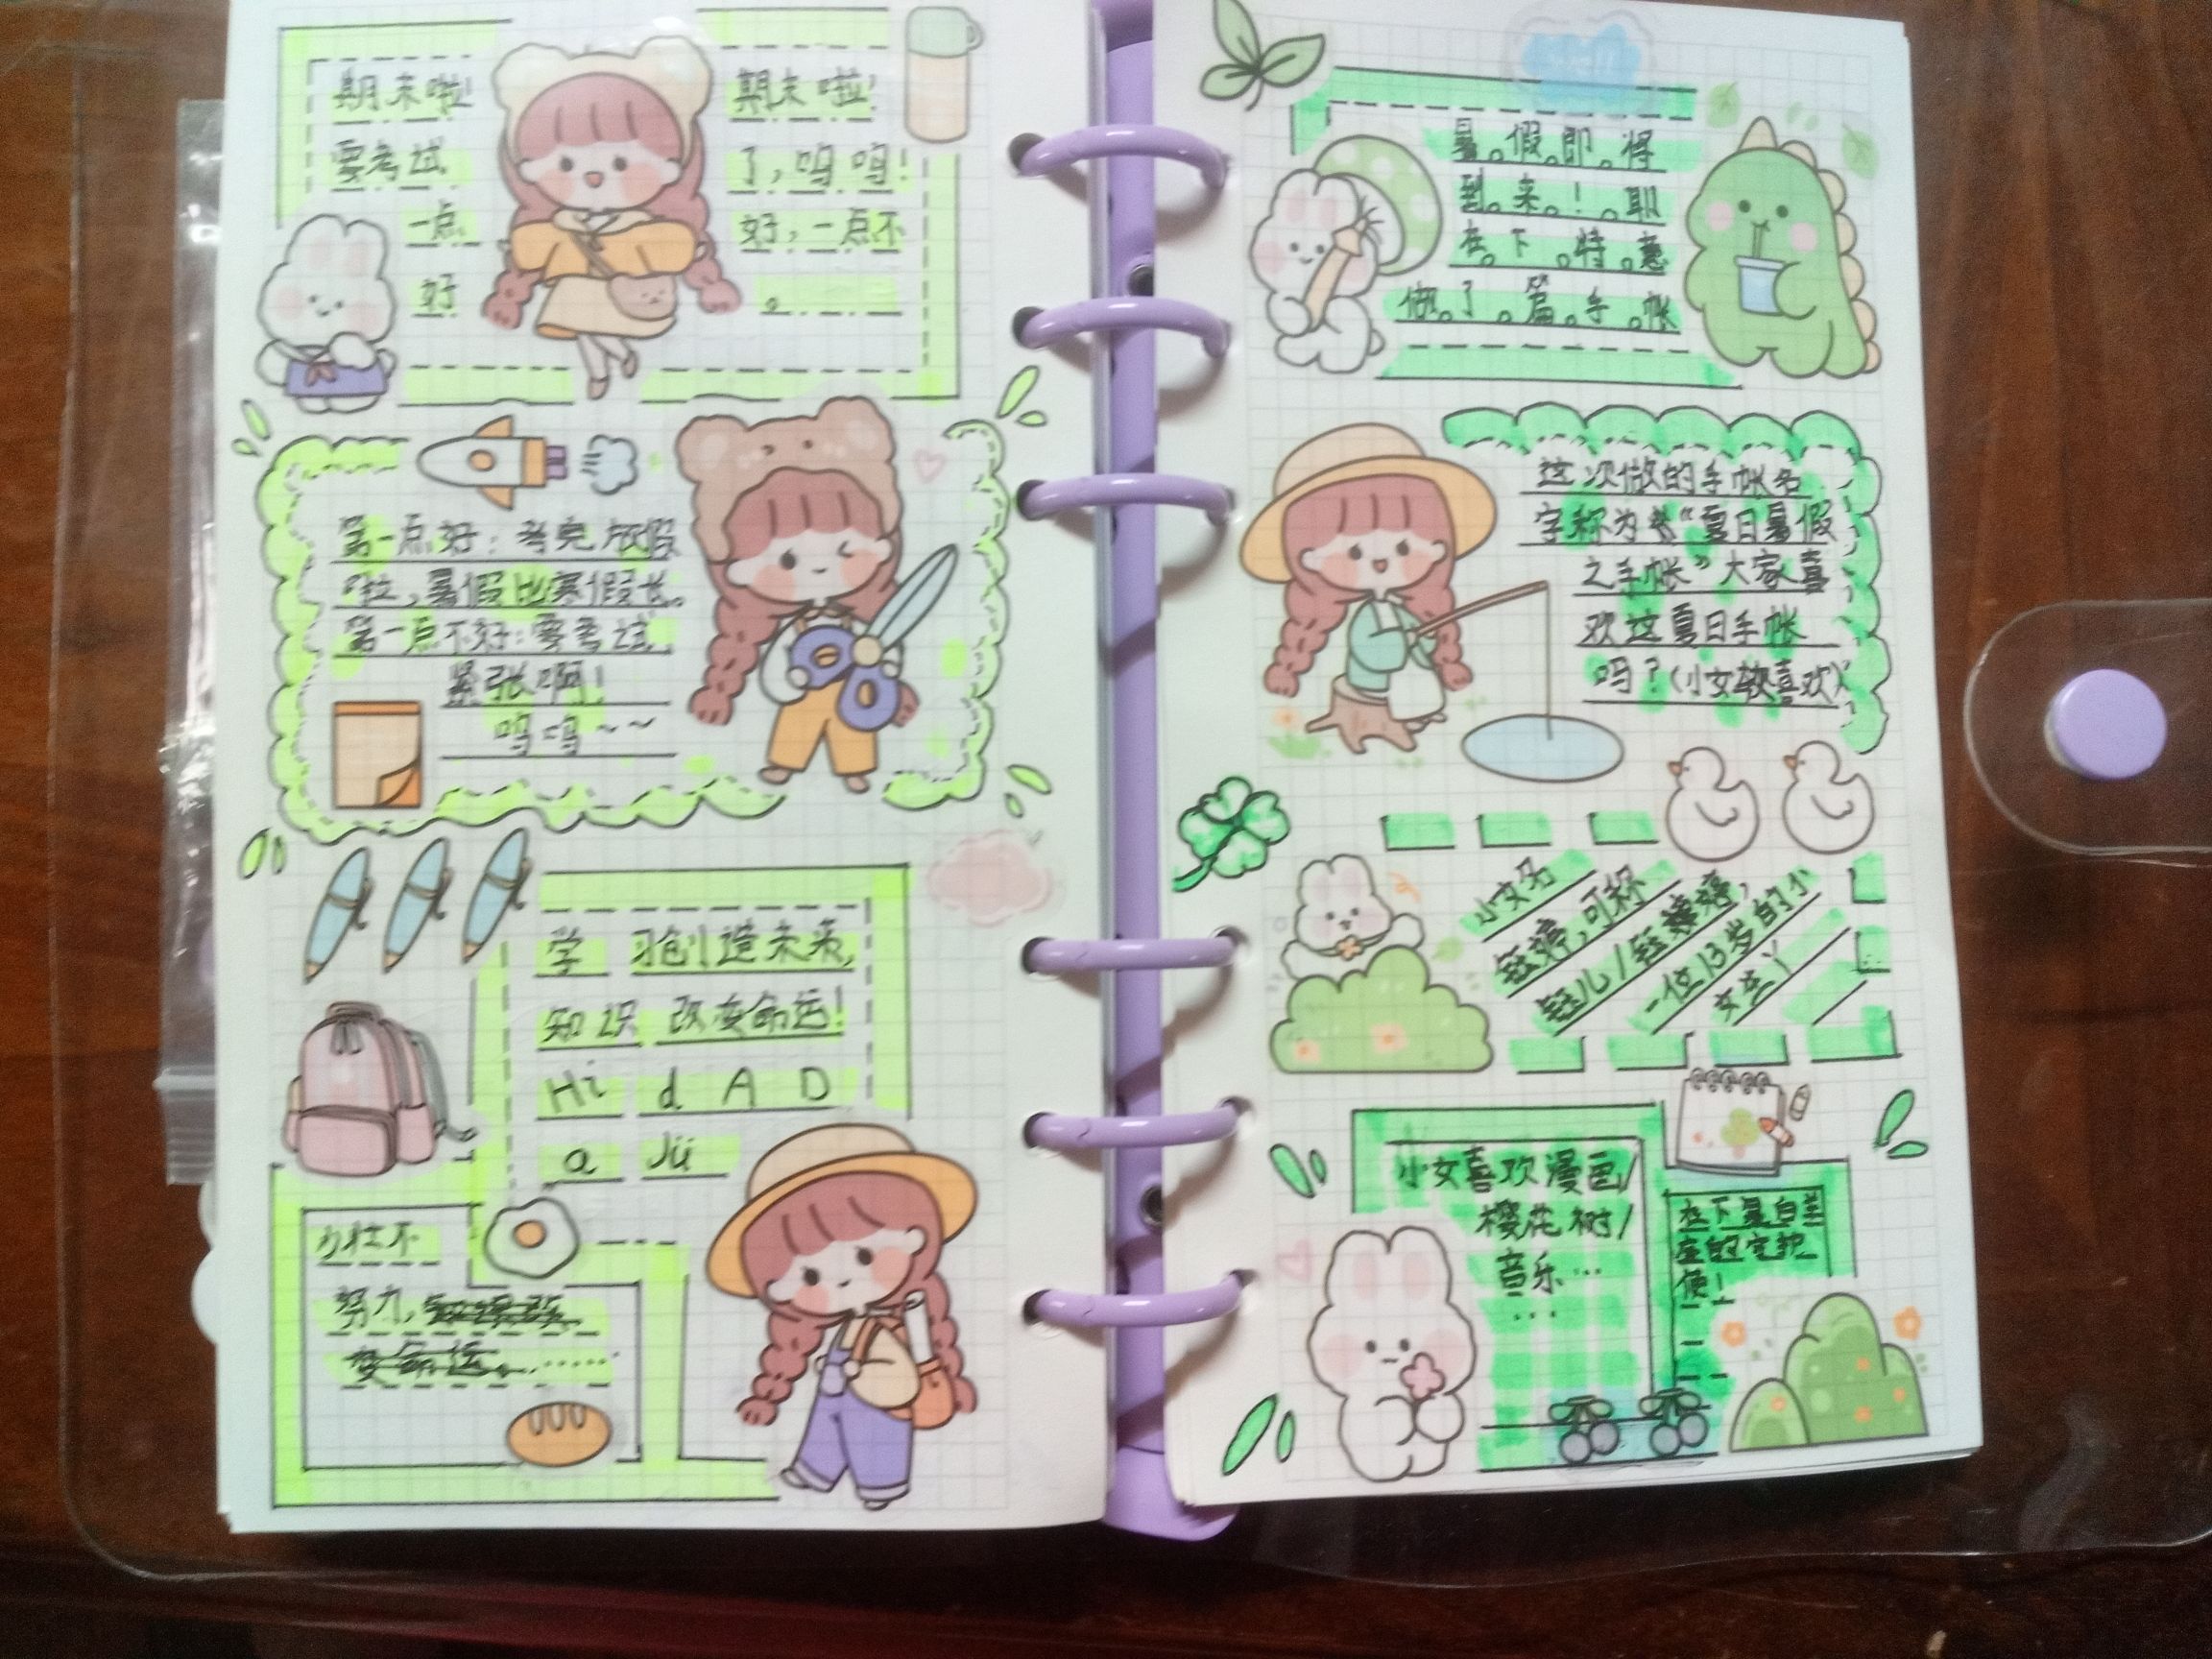 期末啦!
期末啦!
要考试
了,呜呜!
一点
好,一点不
好
。
第一点好:考完放假
啦,暑假比寒假长。
第一点不好:要考试,
紧张啊!
呜呜~~
学 习创造未来,
知识 改变命运!
Hi d A D
a Jü
少壮不
努力,
变命运。……
well
暑。假。即。将
到。来。!。耶
在。下。特。意
做。了。篇。手。帐
这次做的手帐名
字称为“夏日暑假
之手帐”大家喜
欢这夏日手帐
吗?(小女软喜欢)
小女名
钰婷,可称
钰儿/钰婷,
一位13岁的小
女生丫
小女喜欢漫画/
樱花树/
音乐…
…
在下是白羊
座的守护
使!